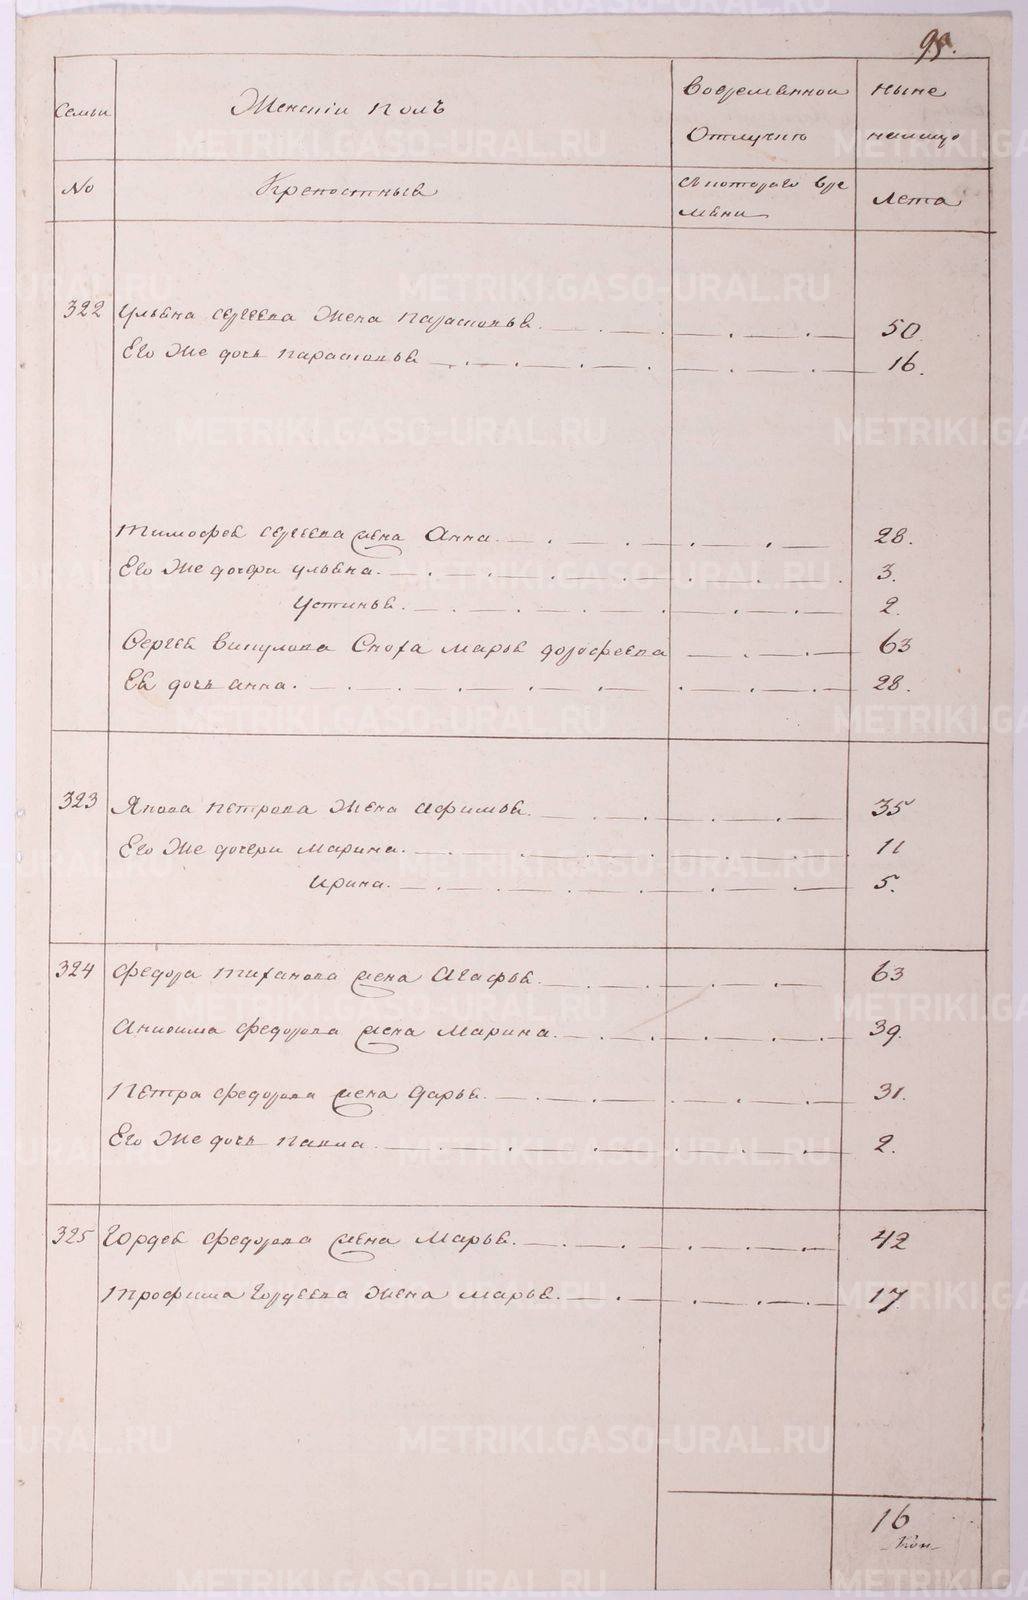 95.
Семьи Женскiй полъ Вовременной ныне
Отлучке налицо
No Крепостныя Съ котораго вре Лета
мени
322 Ульяна сергеева Жена парасковья. 50
Его Же дочь парасковья 16.
тимофея сергеева жена Анна. 28.
Его Же дочери ульяна. 3.
устинья. 2.
Сергея викулова Сноха марья дорофеева 63
Ея дочь анна. 28.
323 Якова петрова Жена афимья. 35
Его Же дочери Марина. 11
ирина. 5.
324 федора тиханова жена Агафья. 63
Анисима федорова жена Марина. 39.
Петра федорова жена дарья. 31.
Его Же дочь павла. 2.
325 Гордея федорова жена Марья. 42
трофима Гордеева Жена марья. 17
16
METRIKI.GASO-URAL.RU